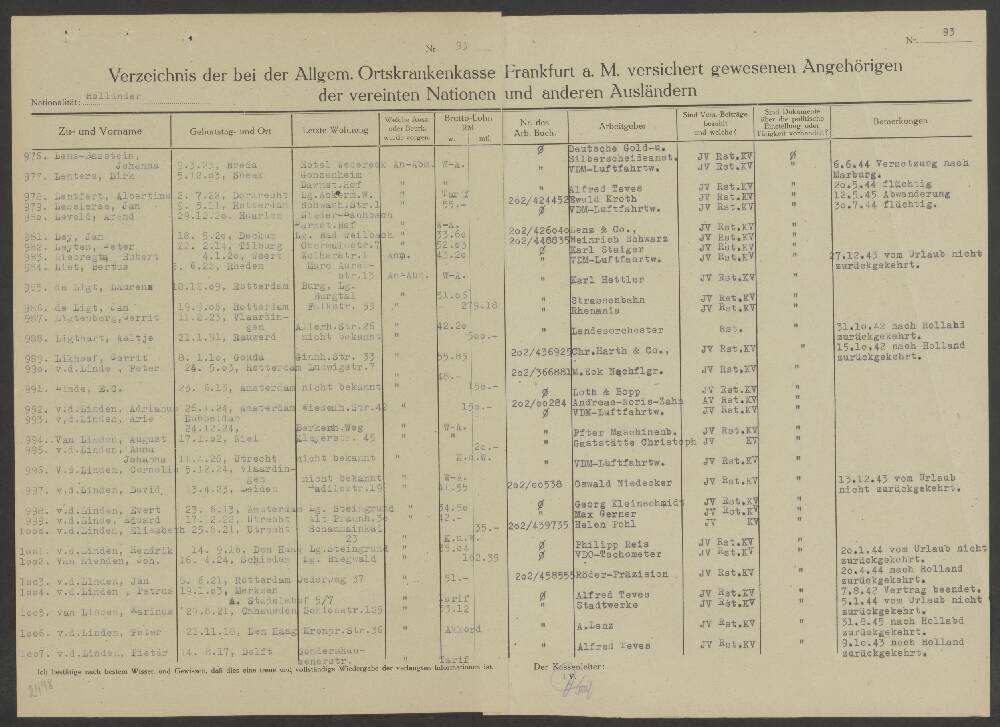 Nr. 93
Nr. 93
Verzeichnis der bei der Allgem. Ortskrankenkasse Frankfurt a. M. versichert gewesenen Angehörigen
der vereinten Nationen und anderen Ausländern
Nationalität: Holländer
Zu- und Vorname Geburtstag- und Ort Letzte Wohnung Welche Ausw. oder Beurk. wurde vorgen. Brutto-Lohn RM w. mtl. Nr. des Arb. Buch. Arbeitgeber Sind Vers.-Beiträge bezahlt und welche? Sind Dokumente über die politische Einstellung oder Tätigkeit vorhanden? Bemerkungen
976. Johanna 9.3.23, Breda Hotel An-Abm. W-A. Ø Deutsche Gold-u. Silberscheideanst. JV Rst.KV Ø
977. Lenters, Dirk 5.12.03, Sneek Gonzenheim " " " VDM-Luftfahrtw. JV Rst.KV " 6.6.44 Versetzung nach Marburg.
978. Lentfert, Albertinus 2. 7.22, Dordrecht Lg. " Tarif " Alfred Teves JV Rst.KV " 20.5.44 flüchtig
979. Jan 9. 5.11, Rotterdam " 55.- 2o2/424452 Ewald Kroth JV Rst.KV " 12.5.45 Abwanderung
980. Leveld, Arend 29.12.20, Haarlem Ø VDM-Luftfahrtw. JV Rst.KV " 30.7.44 flüchtig.
981. Ley, Jan 18. 5.20, Lg. Bad Weilbach " 33.60 2o2/426040 Lenz & Co., JV Rst.KV "
982. Leyten, Peter 22. 2.14, Tilburg " 52.03 2o2/448835 Heinrich Schwarz JV Rst.KV "
983. Hubert 4.1.20, Weert Anm. 43.20 Ø Karl Staiger JV Rst.KV "
984. Liet, Bertus 6.22, Rheden Marc Aurel-str.13 An-Abm. W-A. " VDM-Luftfahrtw. JV Rst.KV " 27.12.43 vom Urlaub nicht zurückgekehrt.
985. de Ligt, Laurens 18.12.09, Rotterdam Burg, Lg. Burgtal " " Karl Hettler JV Rst.KV "
986. de Ligt, Jan 19.9.06, Rotterdam Falkstr. 55 " 279.18 " Strassenbahn JV Rst.KV "
987. Ligtenberg, Gerrit 11.2.23, Vlaardingen Allerh.Str.26 " 42.20 " Rhenania JV Rst.KV "
988. Ligthart, Aaltje 21.1.91, Rauwerd nicht bekannt " 500.- " Landesorchester Rst. " 31.10.42 nach Holland zurückgekehrt.
989. Likhoaf, Gerrit 8. 1.10, Gouda Ginnh.Str. 33 " 55.85 2o2/436925 Chr.Harth & Co., JV Rst.KV " 15.10.42 nach Holland zurückgekehrt.
990. v.d.Linde, Peter 24. 5.03, Rotterdam Ludwigstr.7 " 48.- 2o2/366881 M.Eck Nachflgr. JV Rst.KV "
991. Linde, E.C. 23. 6.15, Amsterdam nicht bekannt " 150.- Ø Loth & Bopp JV Rst.KV "
992. v.d.Linden, Adrianus 26.1.24, Amsterdam Wiesenh.Str.42 " 150.- 2o2/00284 Andreae-Noris-Zahn AV Rst.KV "
993. v.d.Linden, Arie Dubbeldam 24.12.24, Berkerh.Weg " W-A. Ø VDM-Luftfahrtw. JV Rst.KV "
994. Van Linden, August 17.1.02, Niel Klapperstr. 45 " " " Pfter Maschinenb. JV Rst.KV "
995. v.d.Linden, Anna Johanna 11.4.26, Utrecht nicht bekannt " K.u.W. " Gaststätte Christoph JV KV "
996. v.d.Linden, Cornelis 5.12.24, Vlaardingen nicht bekannt " W-A. " VDM-Luftfahrtw. JV Rst.KV "
997. v.d.Linden, David 13.4.23, Leiden " 41.55 2o2/00538 Oswald Niedecker JV Rst.KV " 13.12.43 vom Urlaub nicht zurückgekehrt.
998. v.d.Linden, Evert 23. 6.13, Amsterdam Lg. Steingrund " 54.80 Ø Georg Kleinschmidt JV Rst.KV "
999. v.d.Linde, Eduard 17.2.22, Utrecht Alt Praunh.30 " 42.- " Max Gerner JV Rst.KV "
1000. v.d.Linden, Elisabeth 25.6.21, Utrecht Schamminkal 23 " 35.- K.u.W. 2o2/439735 Helen Pohl JV KV "
1001. v.d.Linden, Hendrik 14. 9.16, Den Haag Lg.Steingrund " Ø Philipp Reis JV Rst.KV "
1002. van Lienden, Joh. 16. 4.24, Schiedam Lg. Riegwald " 162.35 Ø VDO-Tachometer JV Rst.KV " 20.1.44 vom Urlaub nicht zurückgekehrt.
1003. v.d.Linden, Jan 8. 6.21, Rotterdam Oederweg 37 " 51.- 2o2/458555 Röder-Präzision JV Rst.KV " 20.4.44 nach Holland zurückgekehrt.
1004. v.d.Linden, Petrus 19.1.03, Merksen A. Städelshof 5/7 " Tarif Ø Alfred Teves JV Rst.KV " 7.8.42 Vertrag beendet.
1005. van Linden, Marinus 29.8.21, Cuxhausen Schlosstr.125 " 33.12 " Stadtwerke JV Rst.KV " 5.1.44 vom Urlaub nicht zurückgekehrt.
1006. v.d.Linden, Peter 21.11.18, Den Haag Kronpr.Str.36 " Akkord " A.Lanz JV Rst.KV " 31.8.45 nach Holland zurückgekehrt.
1007. v.d.Linden, Pieter 14. 8.17, Delft " Tarif " Alfred Teves JV Rst.KV " 9.10.43 nach Holland zurückgekehrt.
Ich bestätige nach bestem Wissen und Gewissen, daß dies eine treue und vollständige Wiedergabe der verlangten Informationen ist.
Der Kassenleiter:
i.V.
2498